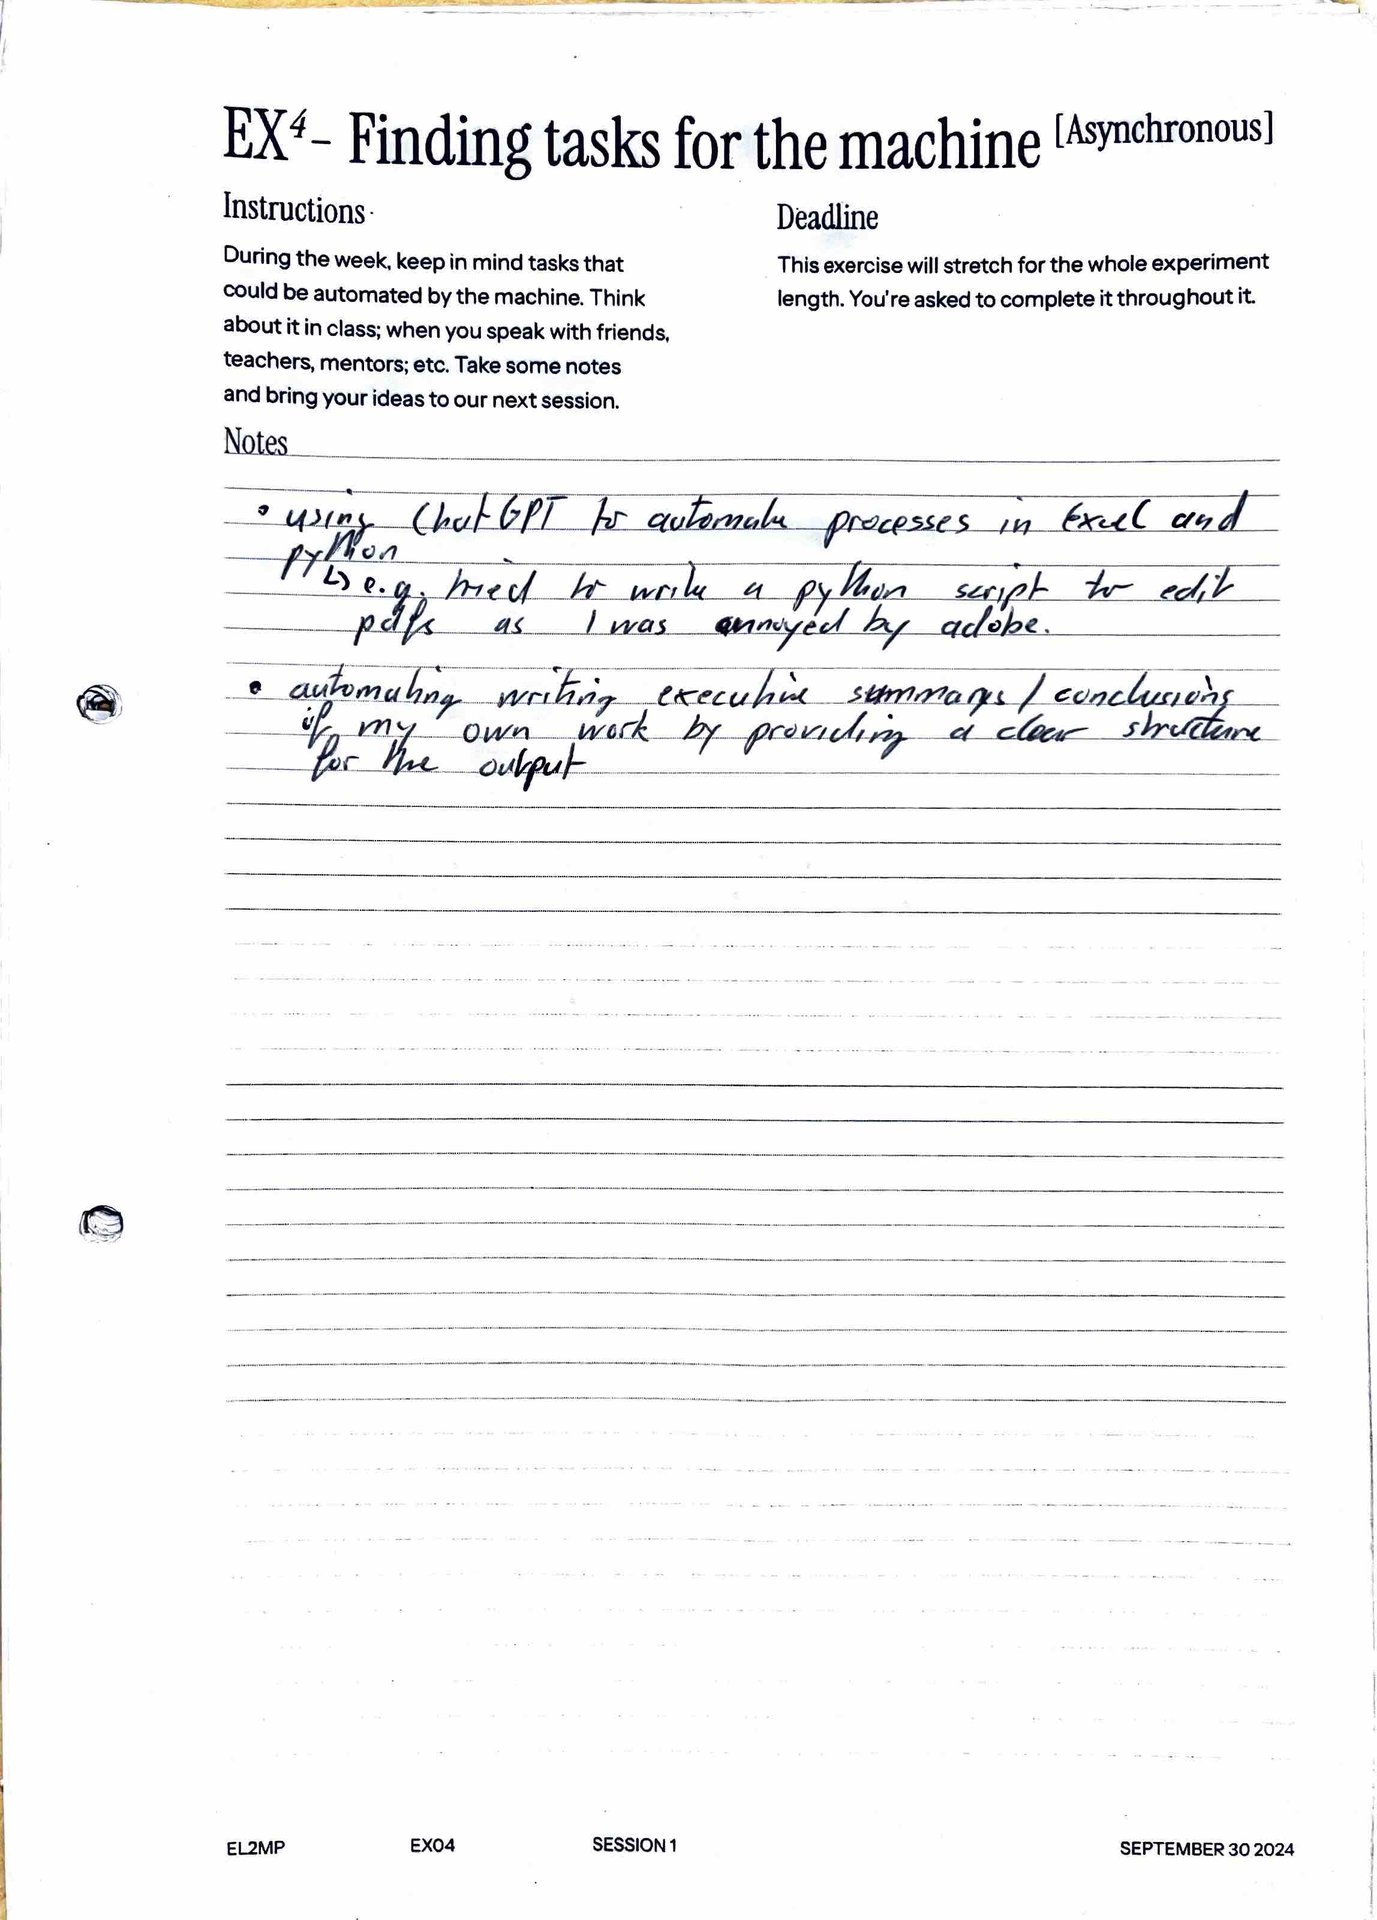 EX⁴- Finding tasks for the machine [Asynchronous]
Instructions
During the week, keep in mind tasks that
could be automated by the machine. Think
about it in class; when you speak with friends,
teachers, mentors; etc. Take some notes
and bring your ideas to our next session.
Deadline
This exercise will stretch for the whole experiment
length. You're asked to complete it throughout it.
Notes
• using ChatGPT to automate processes in Excel and
python
↳ e.g. tried to write a python script to edit
pdfs as I was annoyed by adobe.
• automating writing executive summarys / conclusions
of my own work by providing a clear structure
for the output
EL2MP EX04 SESSION 1 SEPTEMBER 30 2024